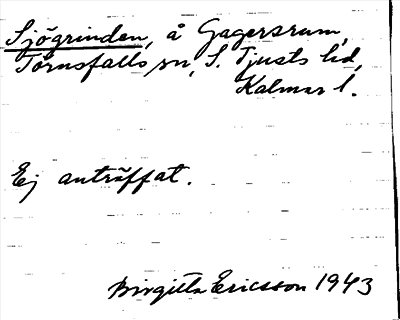 Sjögrinden, å Gagersrum,
Törnsfalls sn, S. Tjusts hd,
Kalmar l.
Ej anträffat.
Birgitta Ericsson 1943